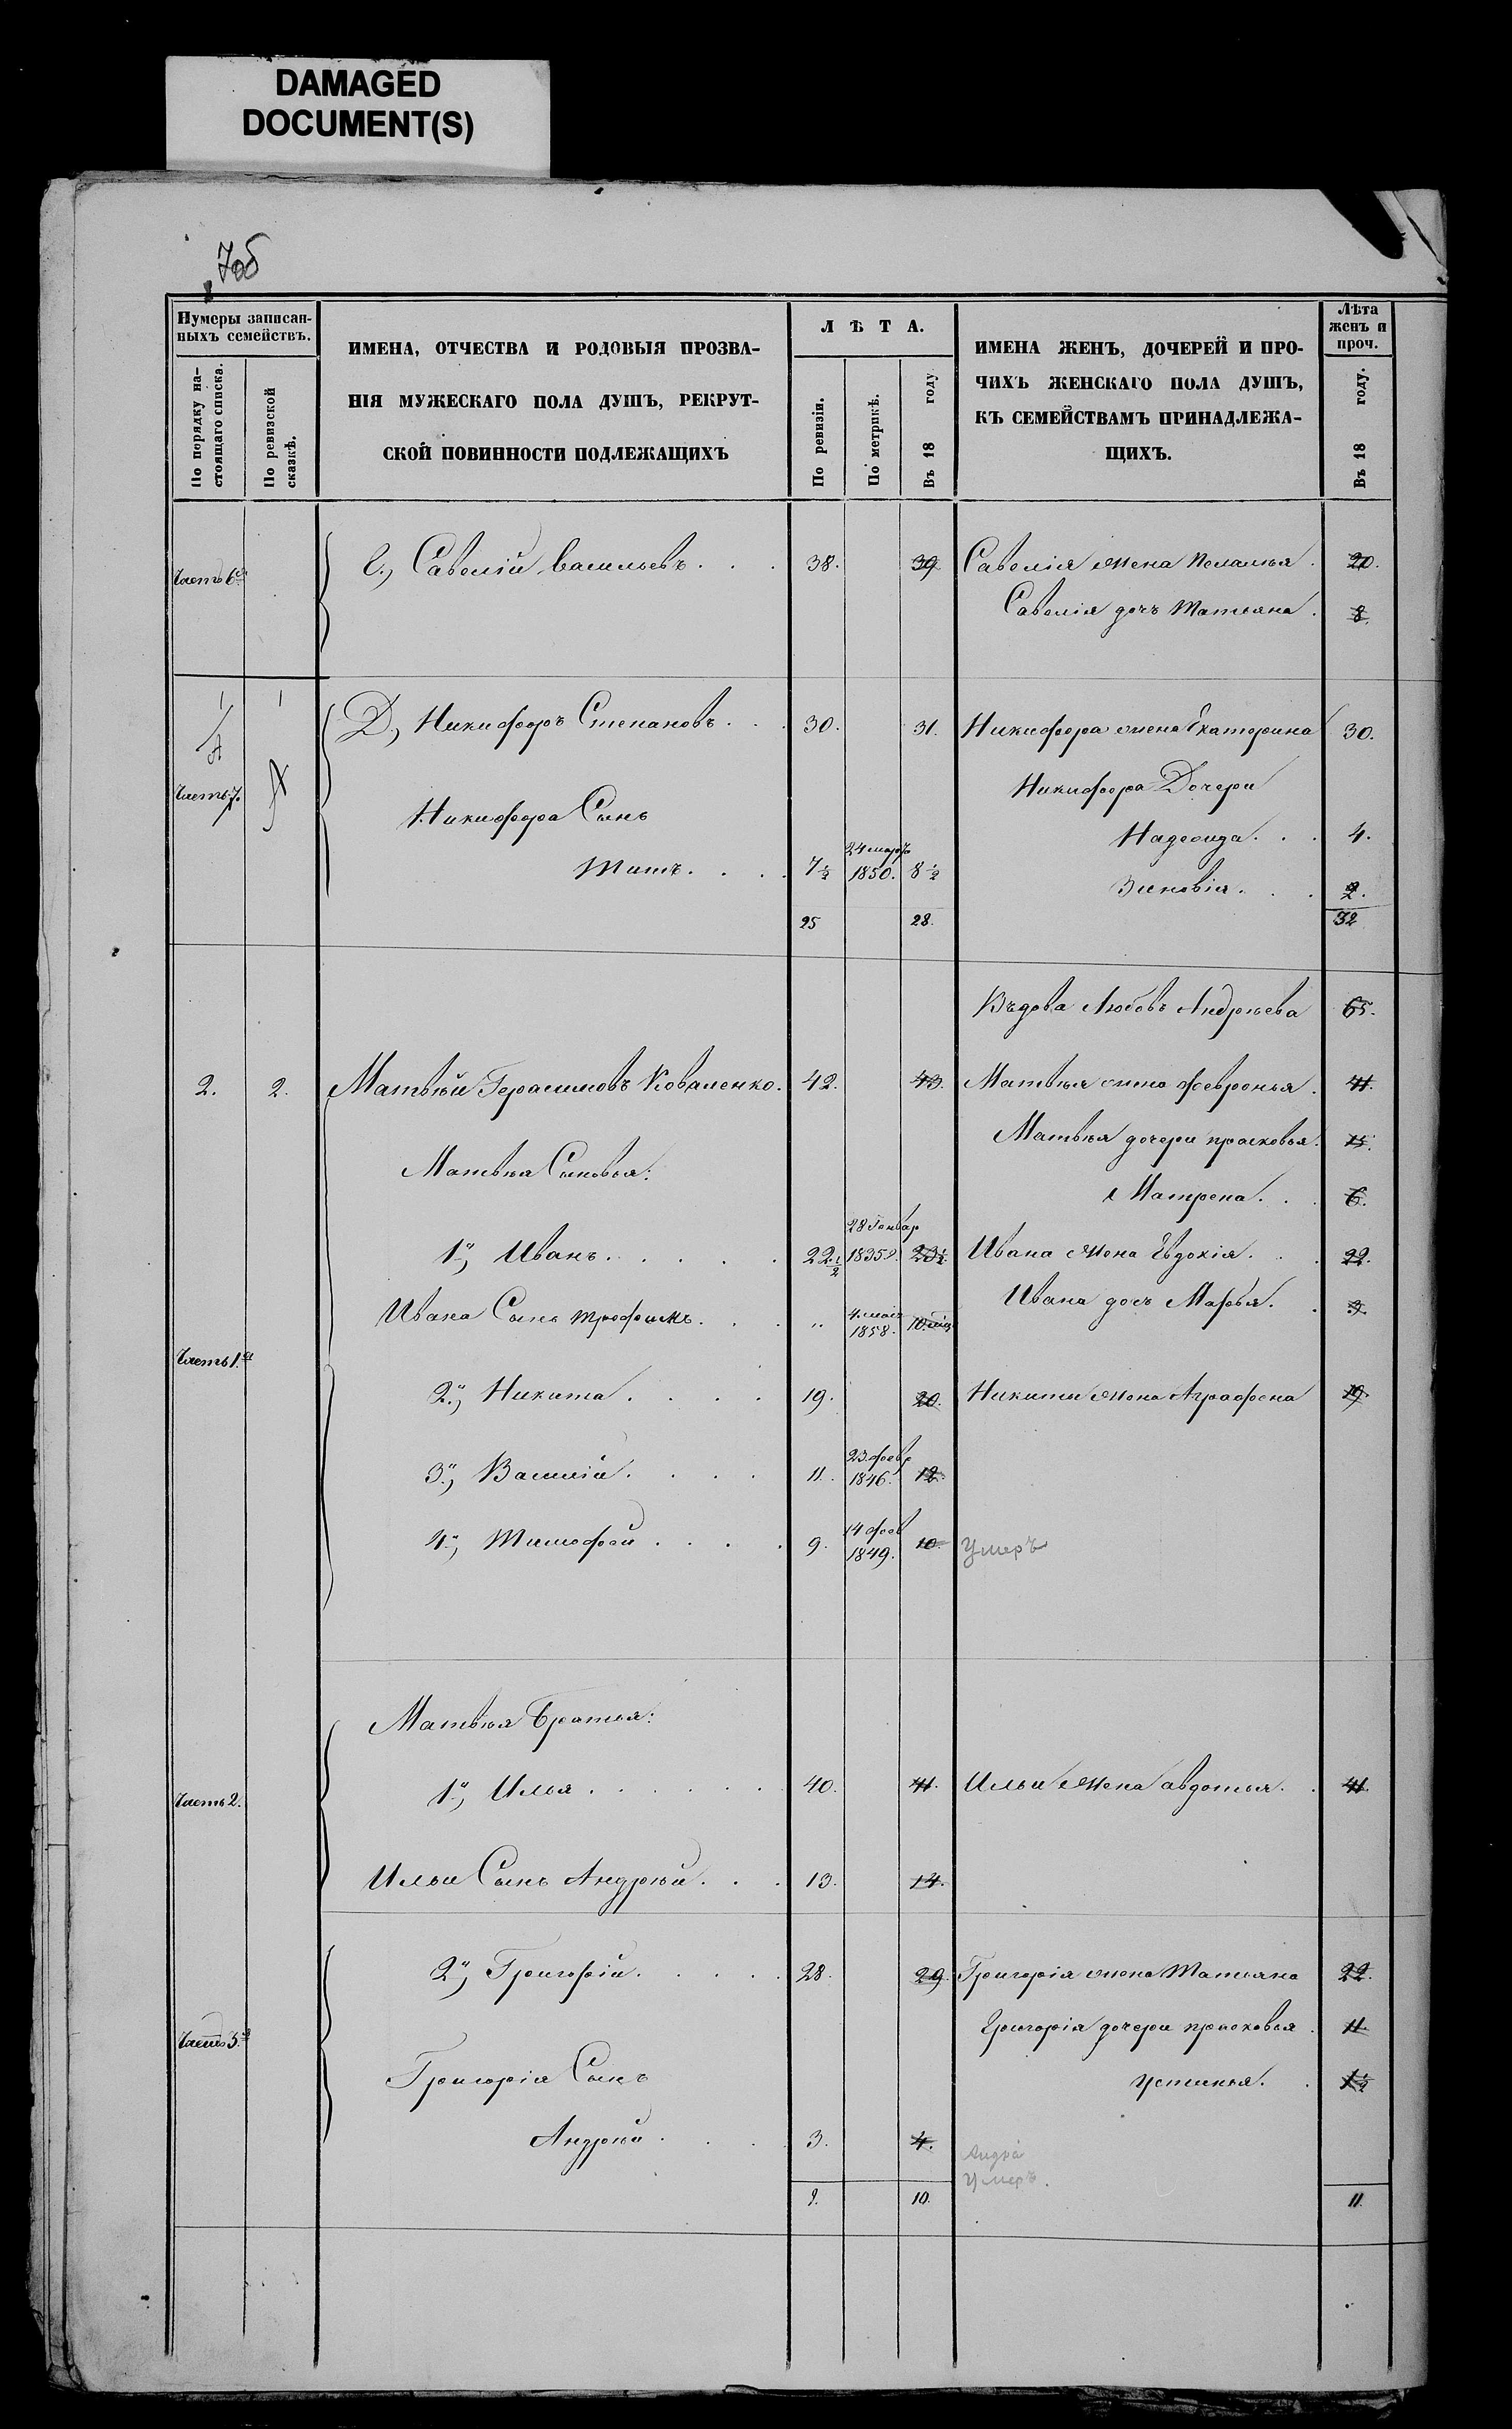 DAMAGED
DOCUMENT(S)
7об
Нумеры записан-
ныхъ семействъ.
По порядку на-
стоящаго списка.
По ревизской
сказкѣ.
ИМЕНА, ОТЧЕСТВА И РОДОВЫЯ ПРОЗВА-
НІЯ МУЖЕСКАГО ПОЛА ДУШЪ, РЕКРУТ-
СКОЙ ПОВИННОСТИ ПОДЛЕЖАЩИХЪ
ЛѢТА.
По ревизіи.
По метрикѣ.
Въ 18 году
ИМЕНА ЖЕНЪ, ДОЧЕРЕЙ И ПРО-
ЧИХЪ ЖЕНСКАГО ПОЛА ДУШЪ,
КЪ СЕМЕЙСТВАМЪ ПРИНАДЛЕЖА-
ЩИХЪ.
Лѣта
женъ и
проч.
Въ 18 году.
Часть 6я С., Савелій Васильевъ . . . 38. 39 Савелія жена Пелагья . 20.
Савелія дочъ Татьяна . 8.
1 1
Часть 7. Д., Никифоръ Степановъ . . . 30. 31. Никифора жена Екатерина 30.
Никифора Дочери
Никифора Сынъ
Надежда . . . 4.
Титъ. . . . 7½ 24 марта 1850. 8½
Зиновія . . . 2.
25 28. 32
Въдова Любовь Андреева 65.
2. 2. Матвѣй Герасимовъ Коваленко. 42. 43. Матвѣя жена Февронья . 41.
Матвѣя дочери Прасковья. 15.
Матвѣя Сыновья:
Матрена . . 6.
1й, Иванъ . . . . . 22½ 28 Генвар 1835. 23½. Ивана жена Евдокія . . 22.
Ивана дочъ Марья. . 3.
Ивана Сынъ Трофимъ . . . „ 4 мая 1858. 10 мѣц
Часть 1.я
2й, Никита . . . . 19. 20. Никиты жена Аграфена 19.
3й, Василій . . . . 11. 23 февр 1846. 12.
4й, Тимофей . . . . 9. 14 фев 1849. 10. Умеръ
Матвѣя Братья:
Часть 2. 1й, Илья . . . . . . 40. 41. Ильи жена Авдотья . . 41.
Ильи Сынъ Андрей . . . 13. 14.
2й, Григорій . . . . . 28. 29. Григорія жена Татьяна 22.
Часть 3.я
Григорія дочери Прасковья . 11.
Григорія Сынъ
Устинья. . 1½
Андрей . . . . 3. 4.
Андрей
Умеръ.
9. 10. 11.